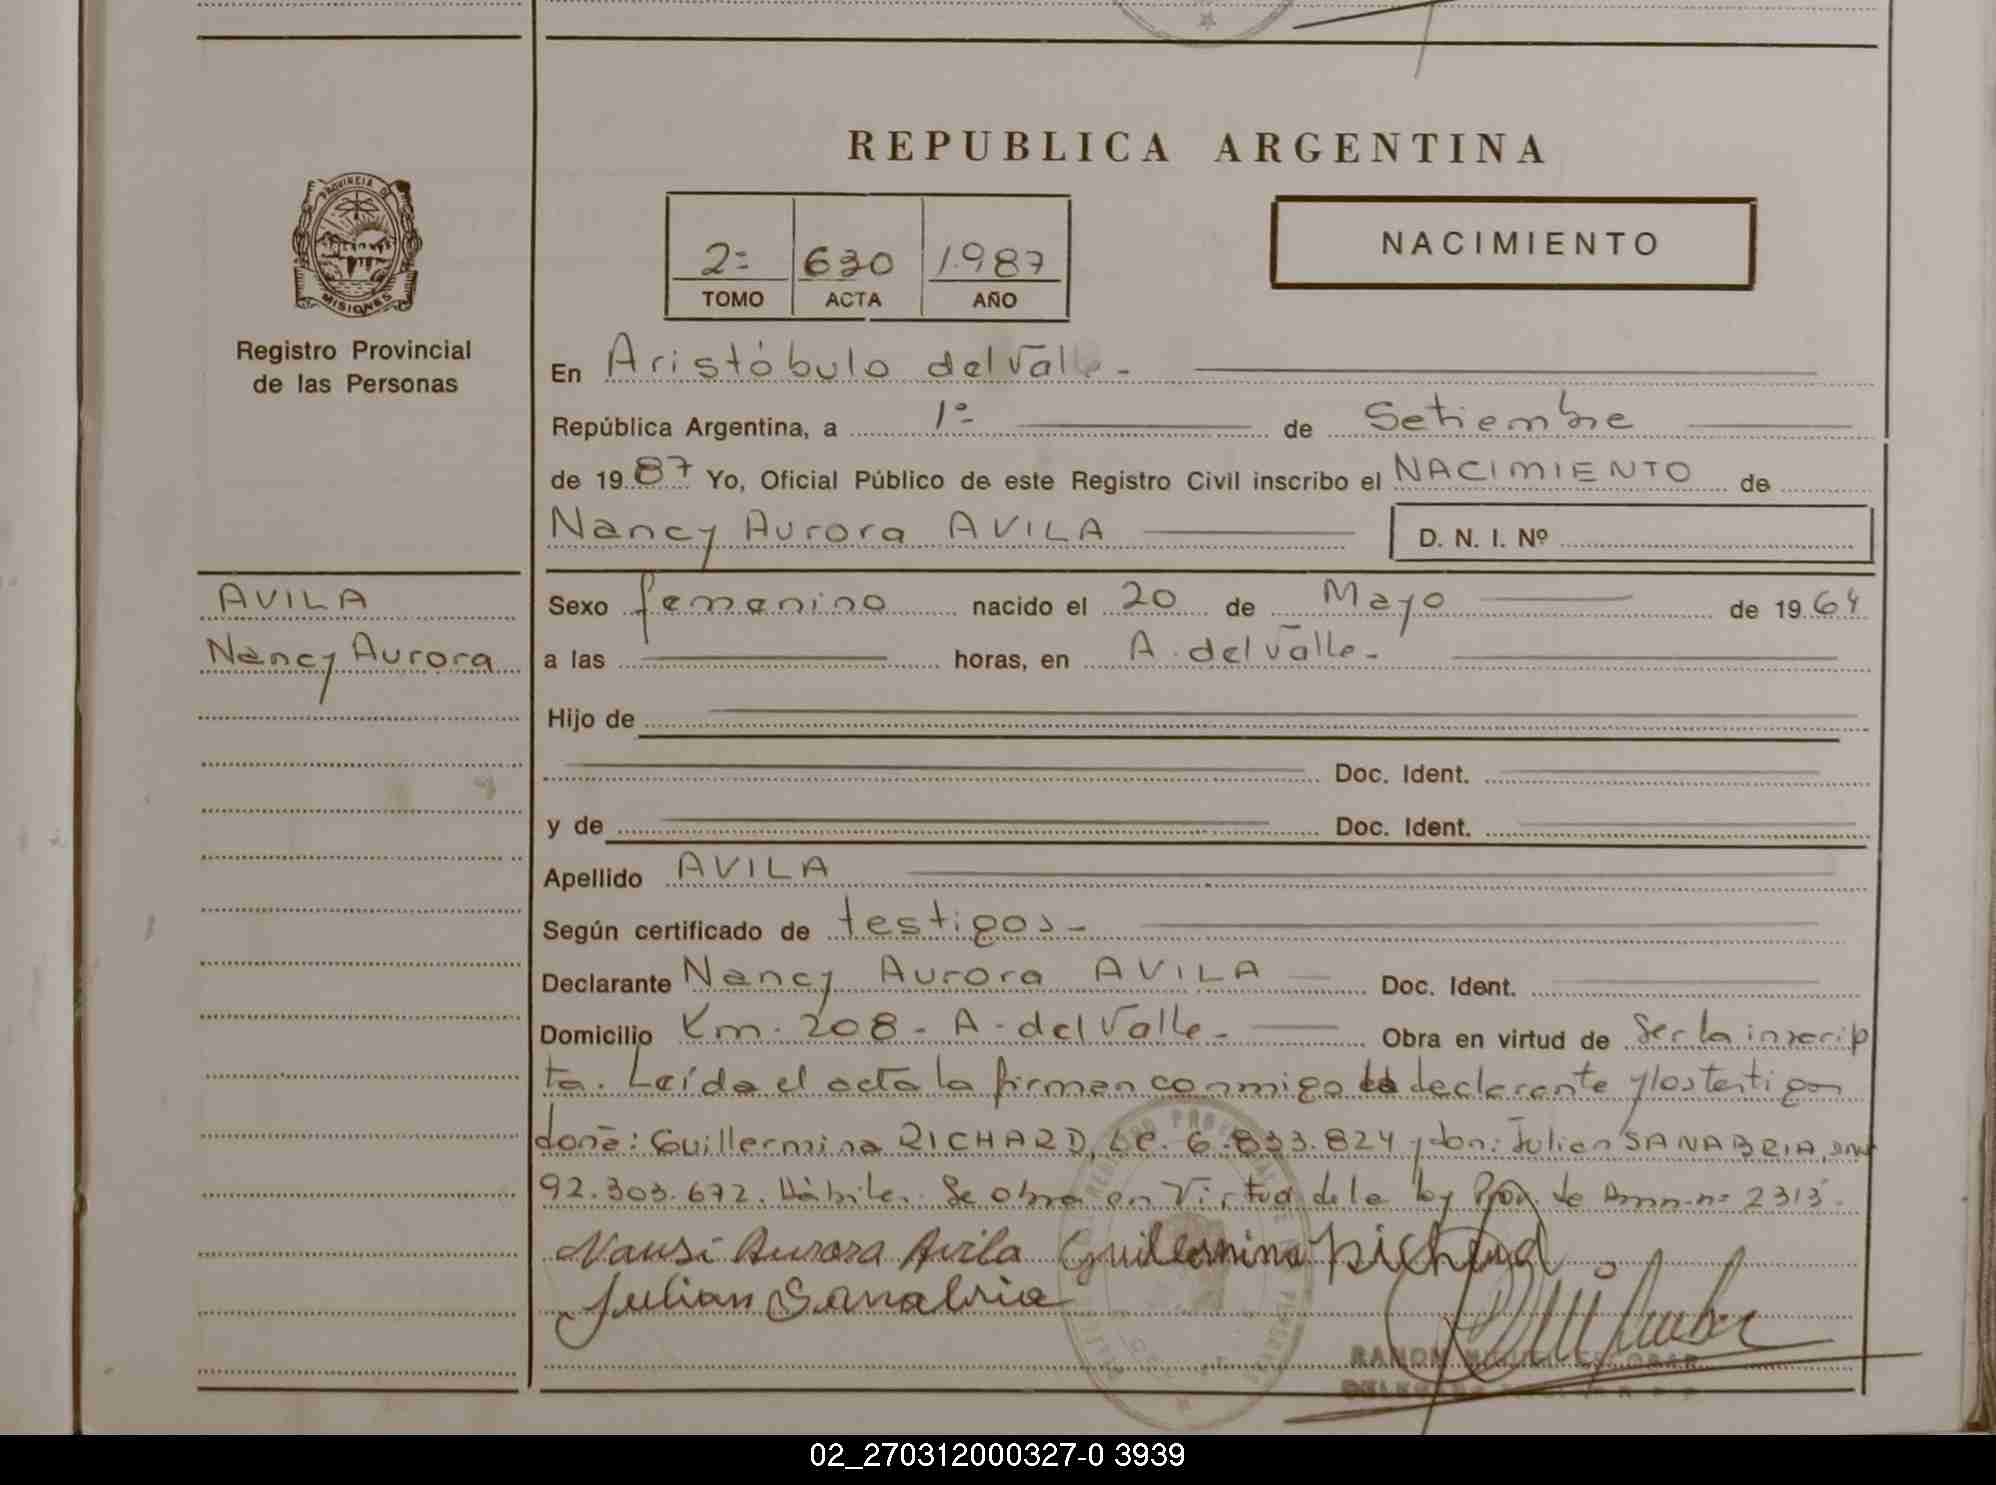 REPUBLICA ARGENTINA
PROVINCIA DE
MISIONES
Registro Provincial
de las Personas
2= 630 1.987
TOMO ACTA AÑO
NACIMIENTO
En Aristóbulo del Valle -
República Argentina, a 1º de Setiembre
de 1987 Yo, Oficial Público de este Registro Civil inscribo el NACIMIENTO de
Nancy Aurora AVILA D. N. I. Nº
AVILA
Nancy Aurora
Sexo femenino nacido el 20 de Mayo de 1964
a las horas, en A. del Valle -
Hijo de
Doc. Ident.
y de Doc. Ident.
Apellido AVILA
Según certificado de testigos -
Declarante Nancy Aurora AVILA Doc. Ident.
Domicilio Km. 208 - A - del Valle - Obra en virtud de Ser la inscrip
ta. Leída el acta la firman conmigo la declarante y los testigos
doña: Guillermina RICHARD, LC. 6.833.824 y don: Julian SANABRIA, DNI
92.303.672. Hábiles. Se obra en Virtud de la ley Prov. de Amn. nº 2313 -
Nausi Aurora Avila Guillermina Richard
Julian Sanabria
RAMON MIGUEL ESCOBAR
02_270312000327-0 3939